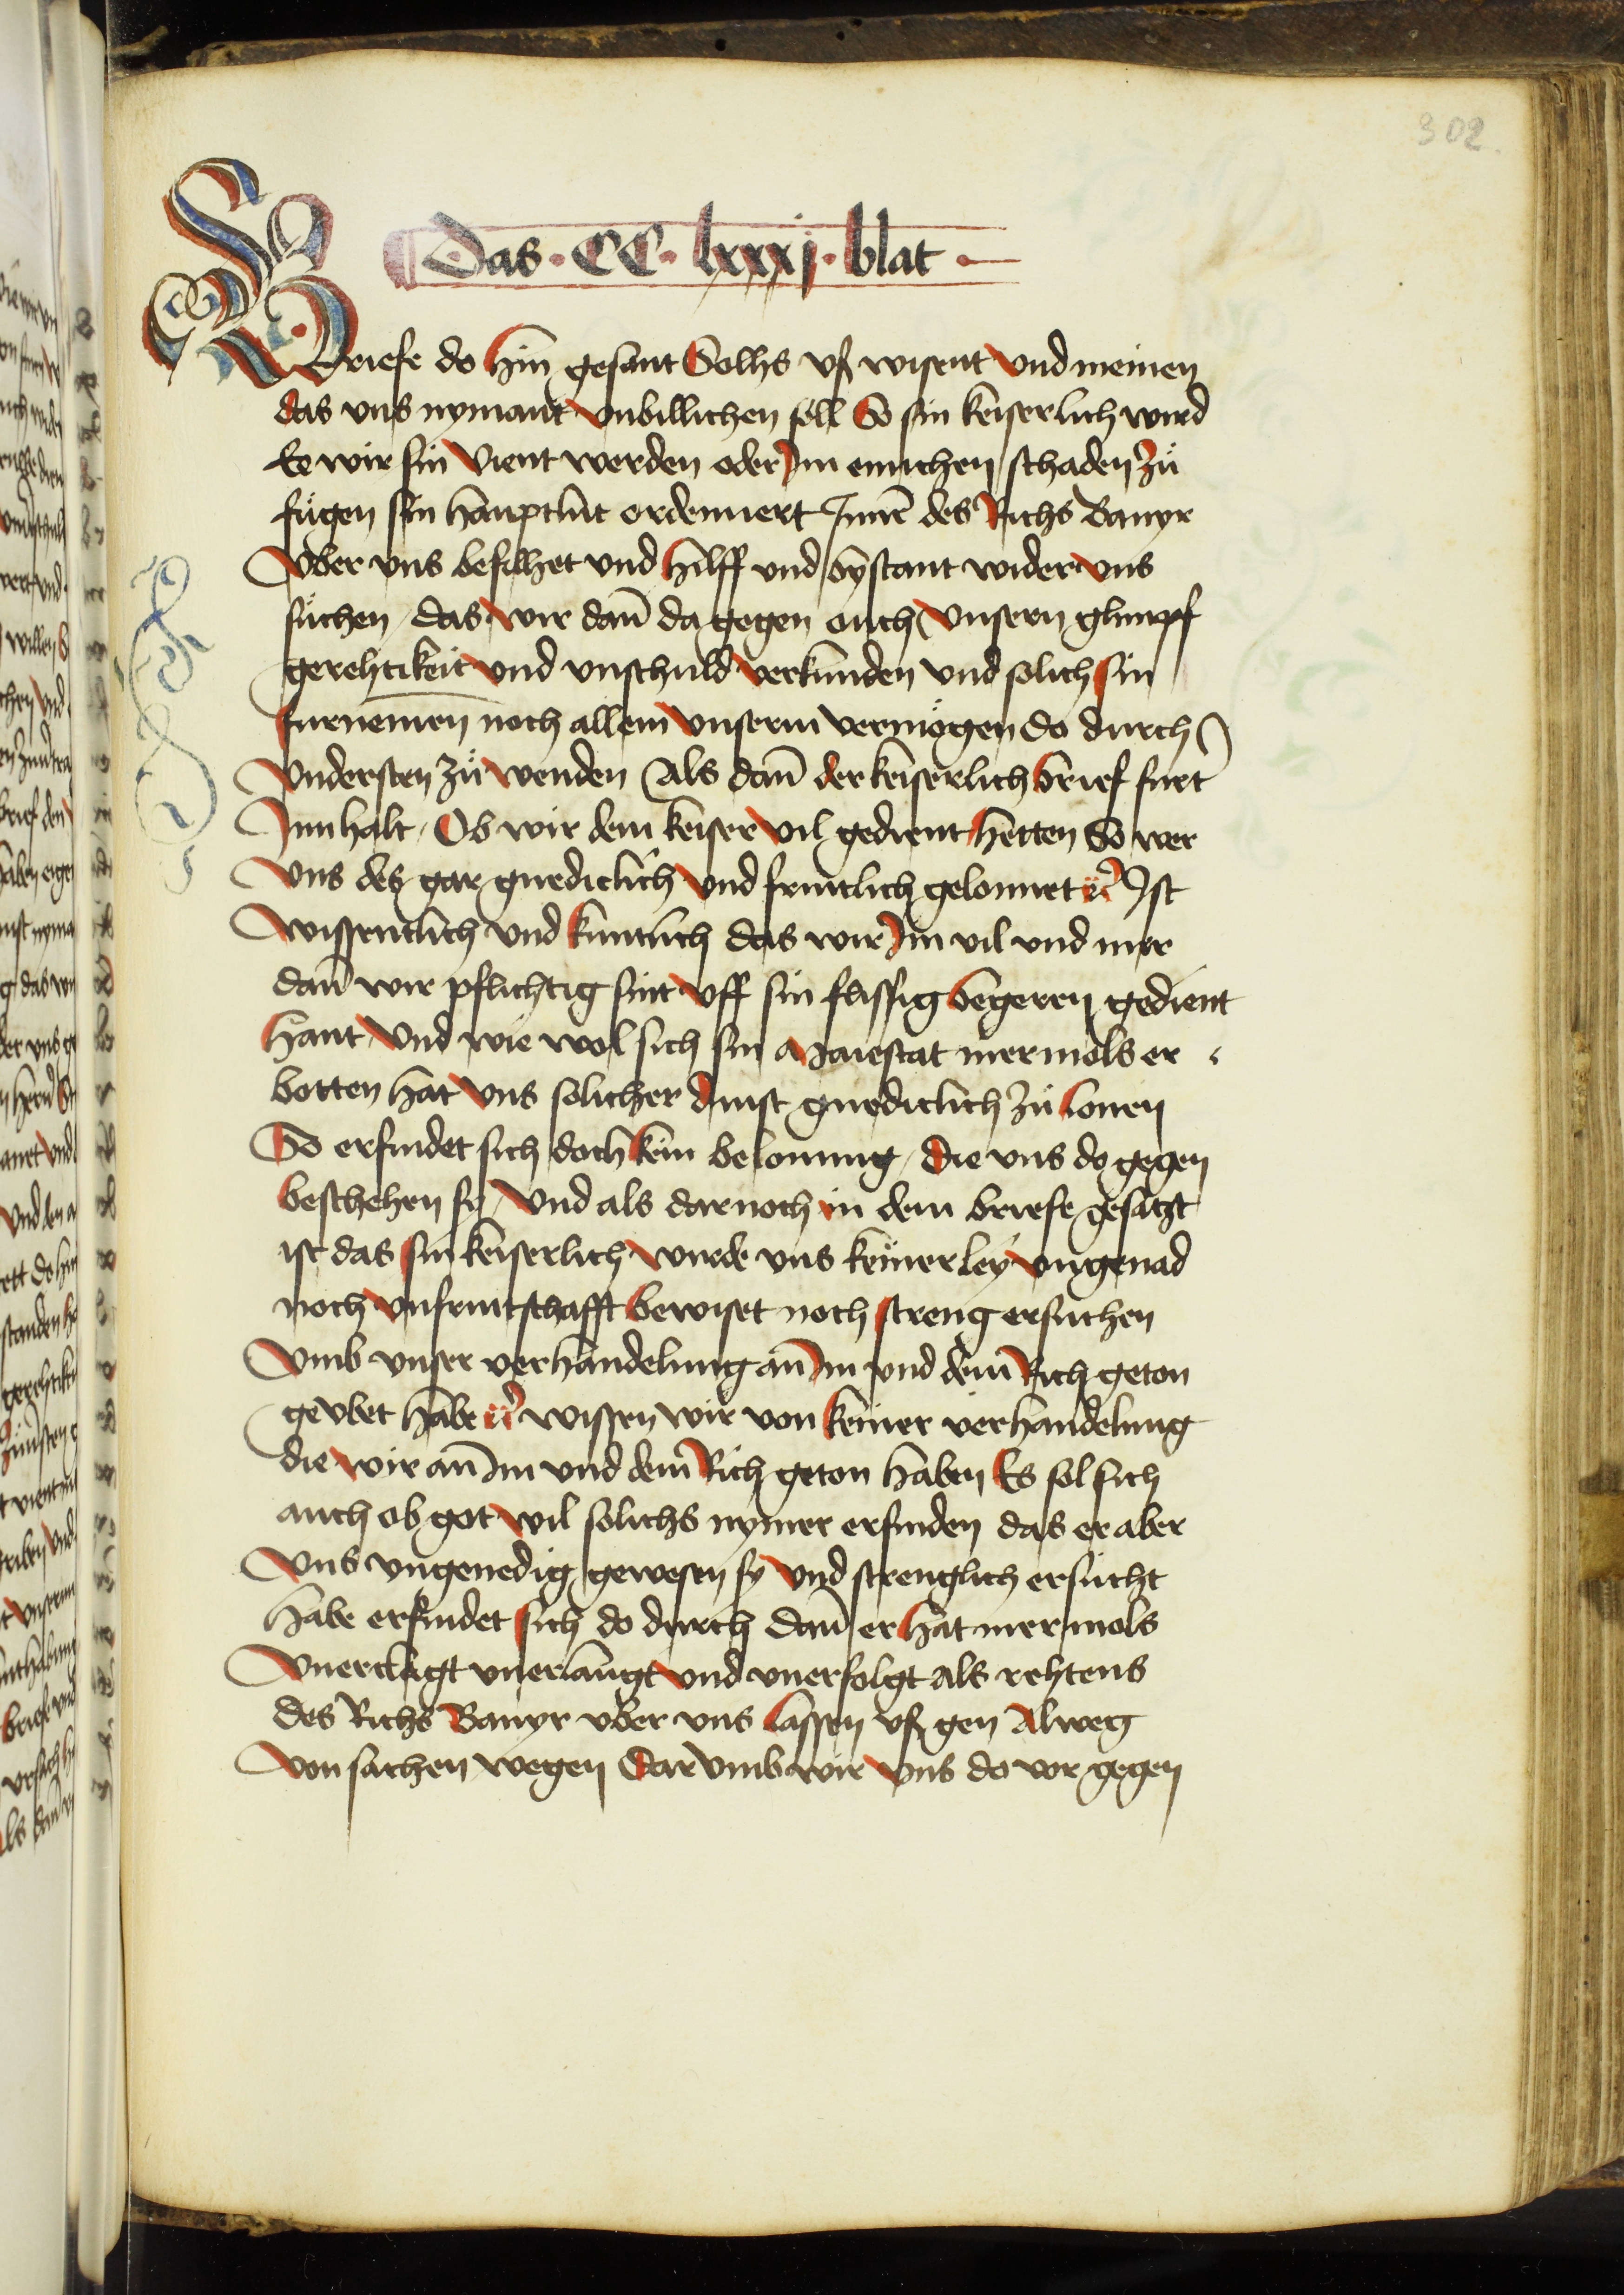 302.
Das · CC · lxxxj · blat ·
Briefe do hin gesant Solhs vß wisent vnd meinen
das vns nymant vnbillichen söll So sin keiserlich wird
Ee wir sin vient werden oder Jm einichen schaden zů
fügen sin hauptlut ordenniert Jnnē des Richs Banyr
Vber vns befilhet vnd hilff vnd bystant wider vns
suchen / das wir dan̄ da gegen ouch vnsern glimpf
gerehtikeit vnd vnschuld verkunden vnd solich sin
furnemen noch allem vnserm vermögen do durch
Vndersten zů wenden Als dan̄ der keiserlich brief furt
Jnn halt / Ob wir dem keiser vil gedient hetten So wer
vns des gar gnediclich vnd fruntlich gelonnet Jst
wissentlich vnd kuntlich das wir Jm vil vnd mer
dan̄ wir pflichtig sint vff sin flissig begeren gedient
hant / Vnd wie wol sich sin Maiestat mermols er
botten hat vns solicher dinst gnediclich zů lonen
So erfindet sich doch kein belonung / die vns do gegen
beschehen sy / Vnd als dar noch in dem briefe gesatzt
ist das sin keiserlich wurde vns keinerley vngenad
noch vnfruntschafft bewiset noch streng ersuchen
Vmb vnser verhandelung an Jm vnd dem Rich geton
gevbet habe wissen wir von keiner verhandelung
die wir an Jm vnd dem Rich geton haben Es sol sich
auch ob got wil solichs nymer erfinden das er aber
Vns vngenedig gewesen sy vnd strenglich ersucht
habe erfindet sich do durch dan̄ er hat mermols
Vnerclagt vnerlangt vnd vnerfolgt als rehtens
des Richs Banyr vber vns lassen vß gen Alweg
Von sachen wegen dar vmb wir vns do vor gegen